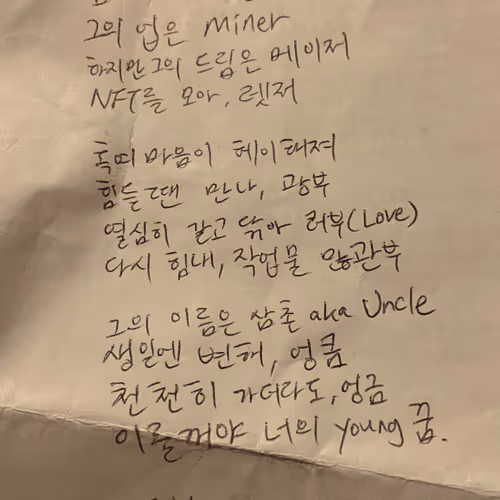 그의 업은 Miner
하지만 그의 드림은 메이저
NFT를 모아, 렛저
혹띠 마음이 헤이해져
힘들땐 만나, 광부
열심히 갈고 닦아 러부(Love)
다시 힘내, 작업물 않관부
그의 이름은 삼촌 aka Uncle
생일엔 변해, 엉큼
천천히 가더라도, 엉금
이룰꺼야 너의 young 꿈.